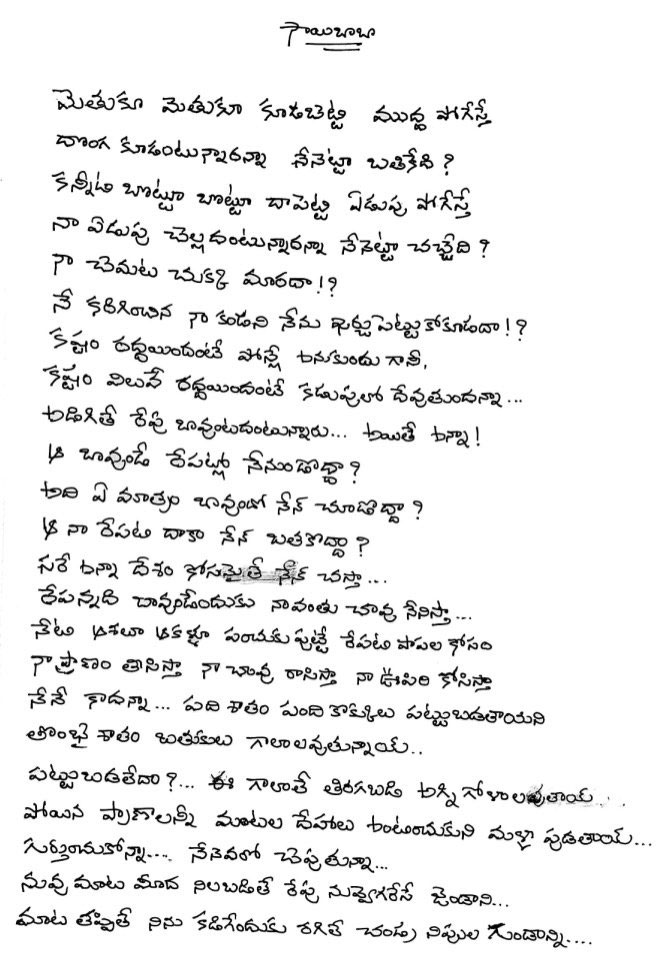 సాయిబాబా
మెతుకూ మెతుకూ కూడబెట్టి ముద్ద పోగేస్తే
దొంగ కూడంటున్నారన్నా నేనెట్టా బతికేది?
కన్నీటి బొట్టూ బొట్టూ దాపెట్టి ఏడుపు పోగేస్తే
నా ఏడుపు చెల్లదంటున్నారన్నా నేనెట్టా చచ్చేది?
నా చెమట చుక్కి మారదా!?
నే కరిగించిన నా కండని నేను ఖర్చుపెట్టుకోకూడదా!?
కష్టం రద్దయిందంటే పోన్లే అనుకుందు గానీ,
కష్టం విలువే రద్దయిందంటే కడుపులో దేవుతుందన్నా...
అడిగితే రేపు బావుంటదంటున్నారు... అయితే అన్నా!
ఆ బావుండే రేపట్లో నేనుండొద్దా?
అది ఏ మాత్రం బావుందో నేన్ చూడొద్దా?
ఆ నా రేపటి దాకా నేన్ బతకొద్దా?
సరే అన్నా దేశం కోసమైతే నేన్ చస్తా...
రేపన్నది బావుండేందుకు నావంతు చావు నేనిస్తా...
నేటి ఆశలూ ఆకళ్లూ పంచుకు పుట్టే రేపటి పాపల కోసం
నా ప్రాణం తీసిస్తా నా చావు రాసిస్తా నా ఊపిరి కోసిస్తా
నేనే కాదన్నా... పది శాతం పంది కొక్కులు పట్టుబడతాయని
తొంభై శాతం బతుకులు గాలాలవుతున్నాయ్..
పట్టుబడతేదా?... ఈ గాలాలే తిరగబడి అగ్ని గోళాలవుతాయ్...
పోయిన ప్రాణాలన్నీ మాటల దేహాలు అంటించుకుని మళ్లా పుడతాయ్...
గుర్తుంచుకోన్నా.... నేనెవరో చెపుతున్నా...
నువు మాట మీద నిలబడితే రేపు నువ్వెగరేసే జెండాని...
మాట తప్పితే నిను కడిగేందుకు రగిలే చండ్ర నిప్పుల గుండాన్ని....